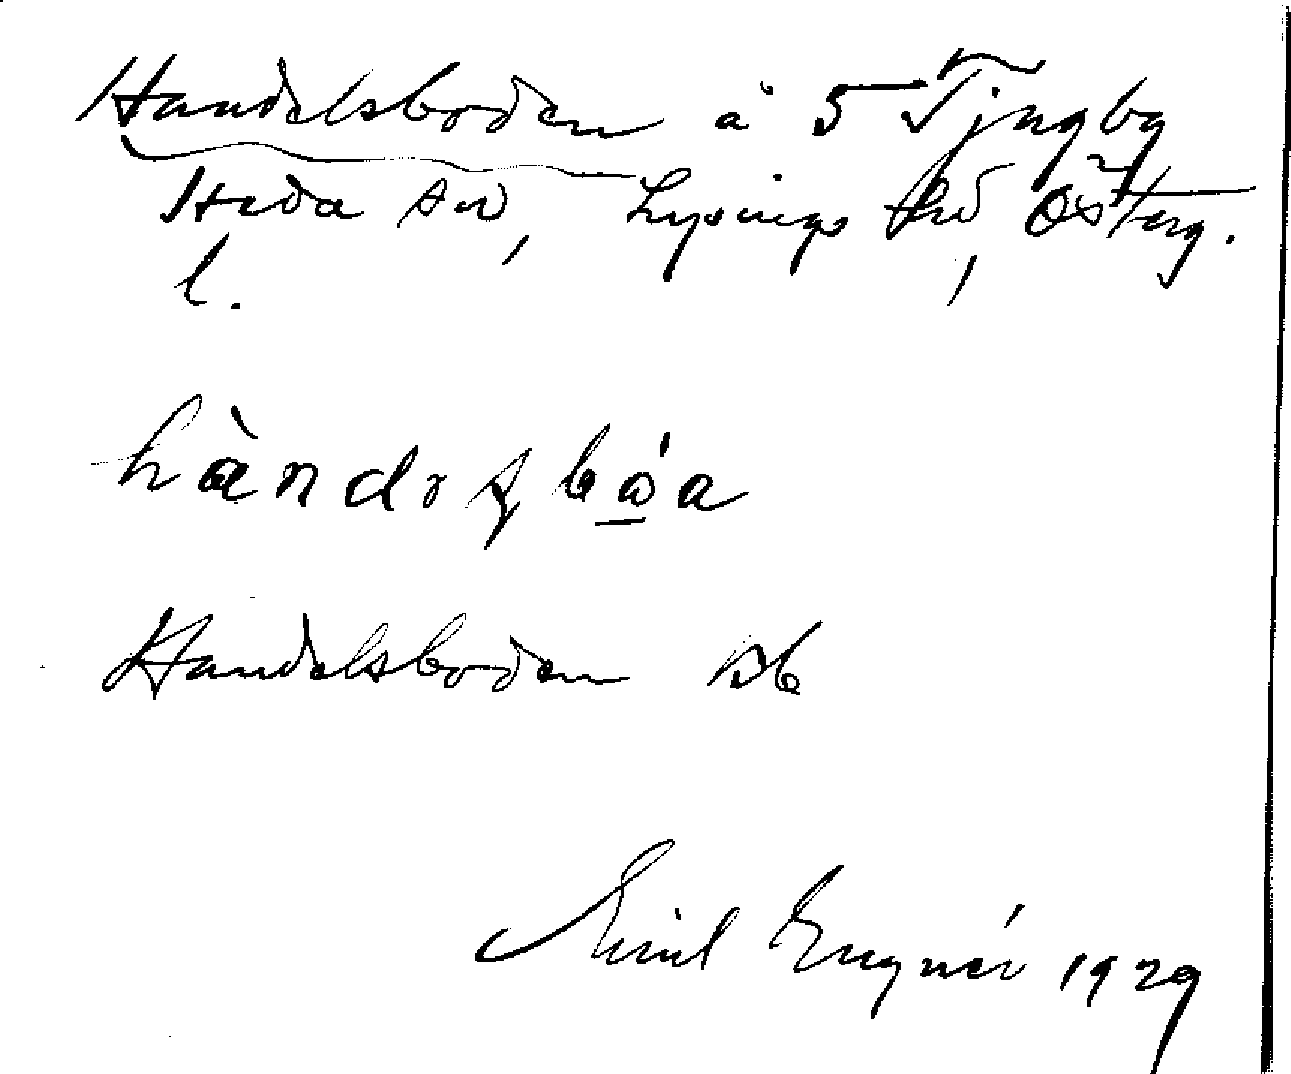 Handelsboden å 5 Tjugby
Heda sn, Lysings hd, Österg.
l.
hàndəsbóa
Handelsboden sb
Emil Engnér 1929